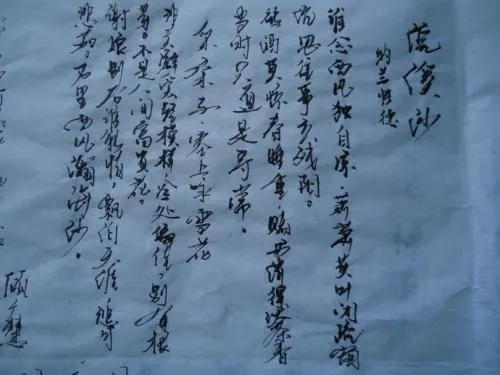 浣溪沙
纳兰性德
谁念西风独自凉，萧萧黄叶闭疏窗
沉思往事立残阳。
被酒莫惊春睡重，赌书消得泼茶香
当时只道是寻常。
采桑子 塞上咏雪花
非关癖爱轻模样，冷处偏佳，别有根
芽。不是人间富贵花。
谢娘别后谁能惜，飘泊天涯，寒月
悲笳。万里西风瀚海沙。